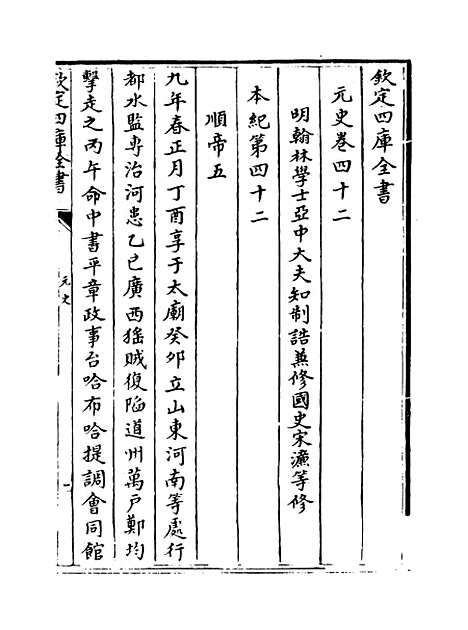 欽定四庫全書
元史卷四十二
明翰林學士亞中大夫知制誥兼修國史宋濂等修
本紀第四十二
順帝五
九年春正月丁酉享于太廟癸卯立山東河南等處行
都水監專治河患乙巳廣西猺賊復陷道州萬戶鄭均
擊走之丙午命中書平章政事台哈布哈提調會同館
欽定四庫全書
元史
一